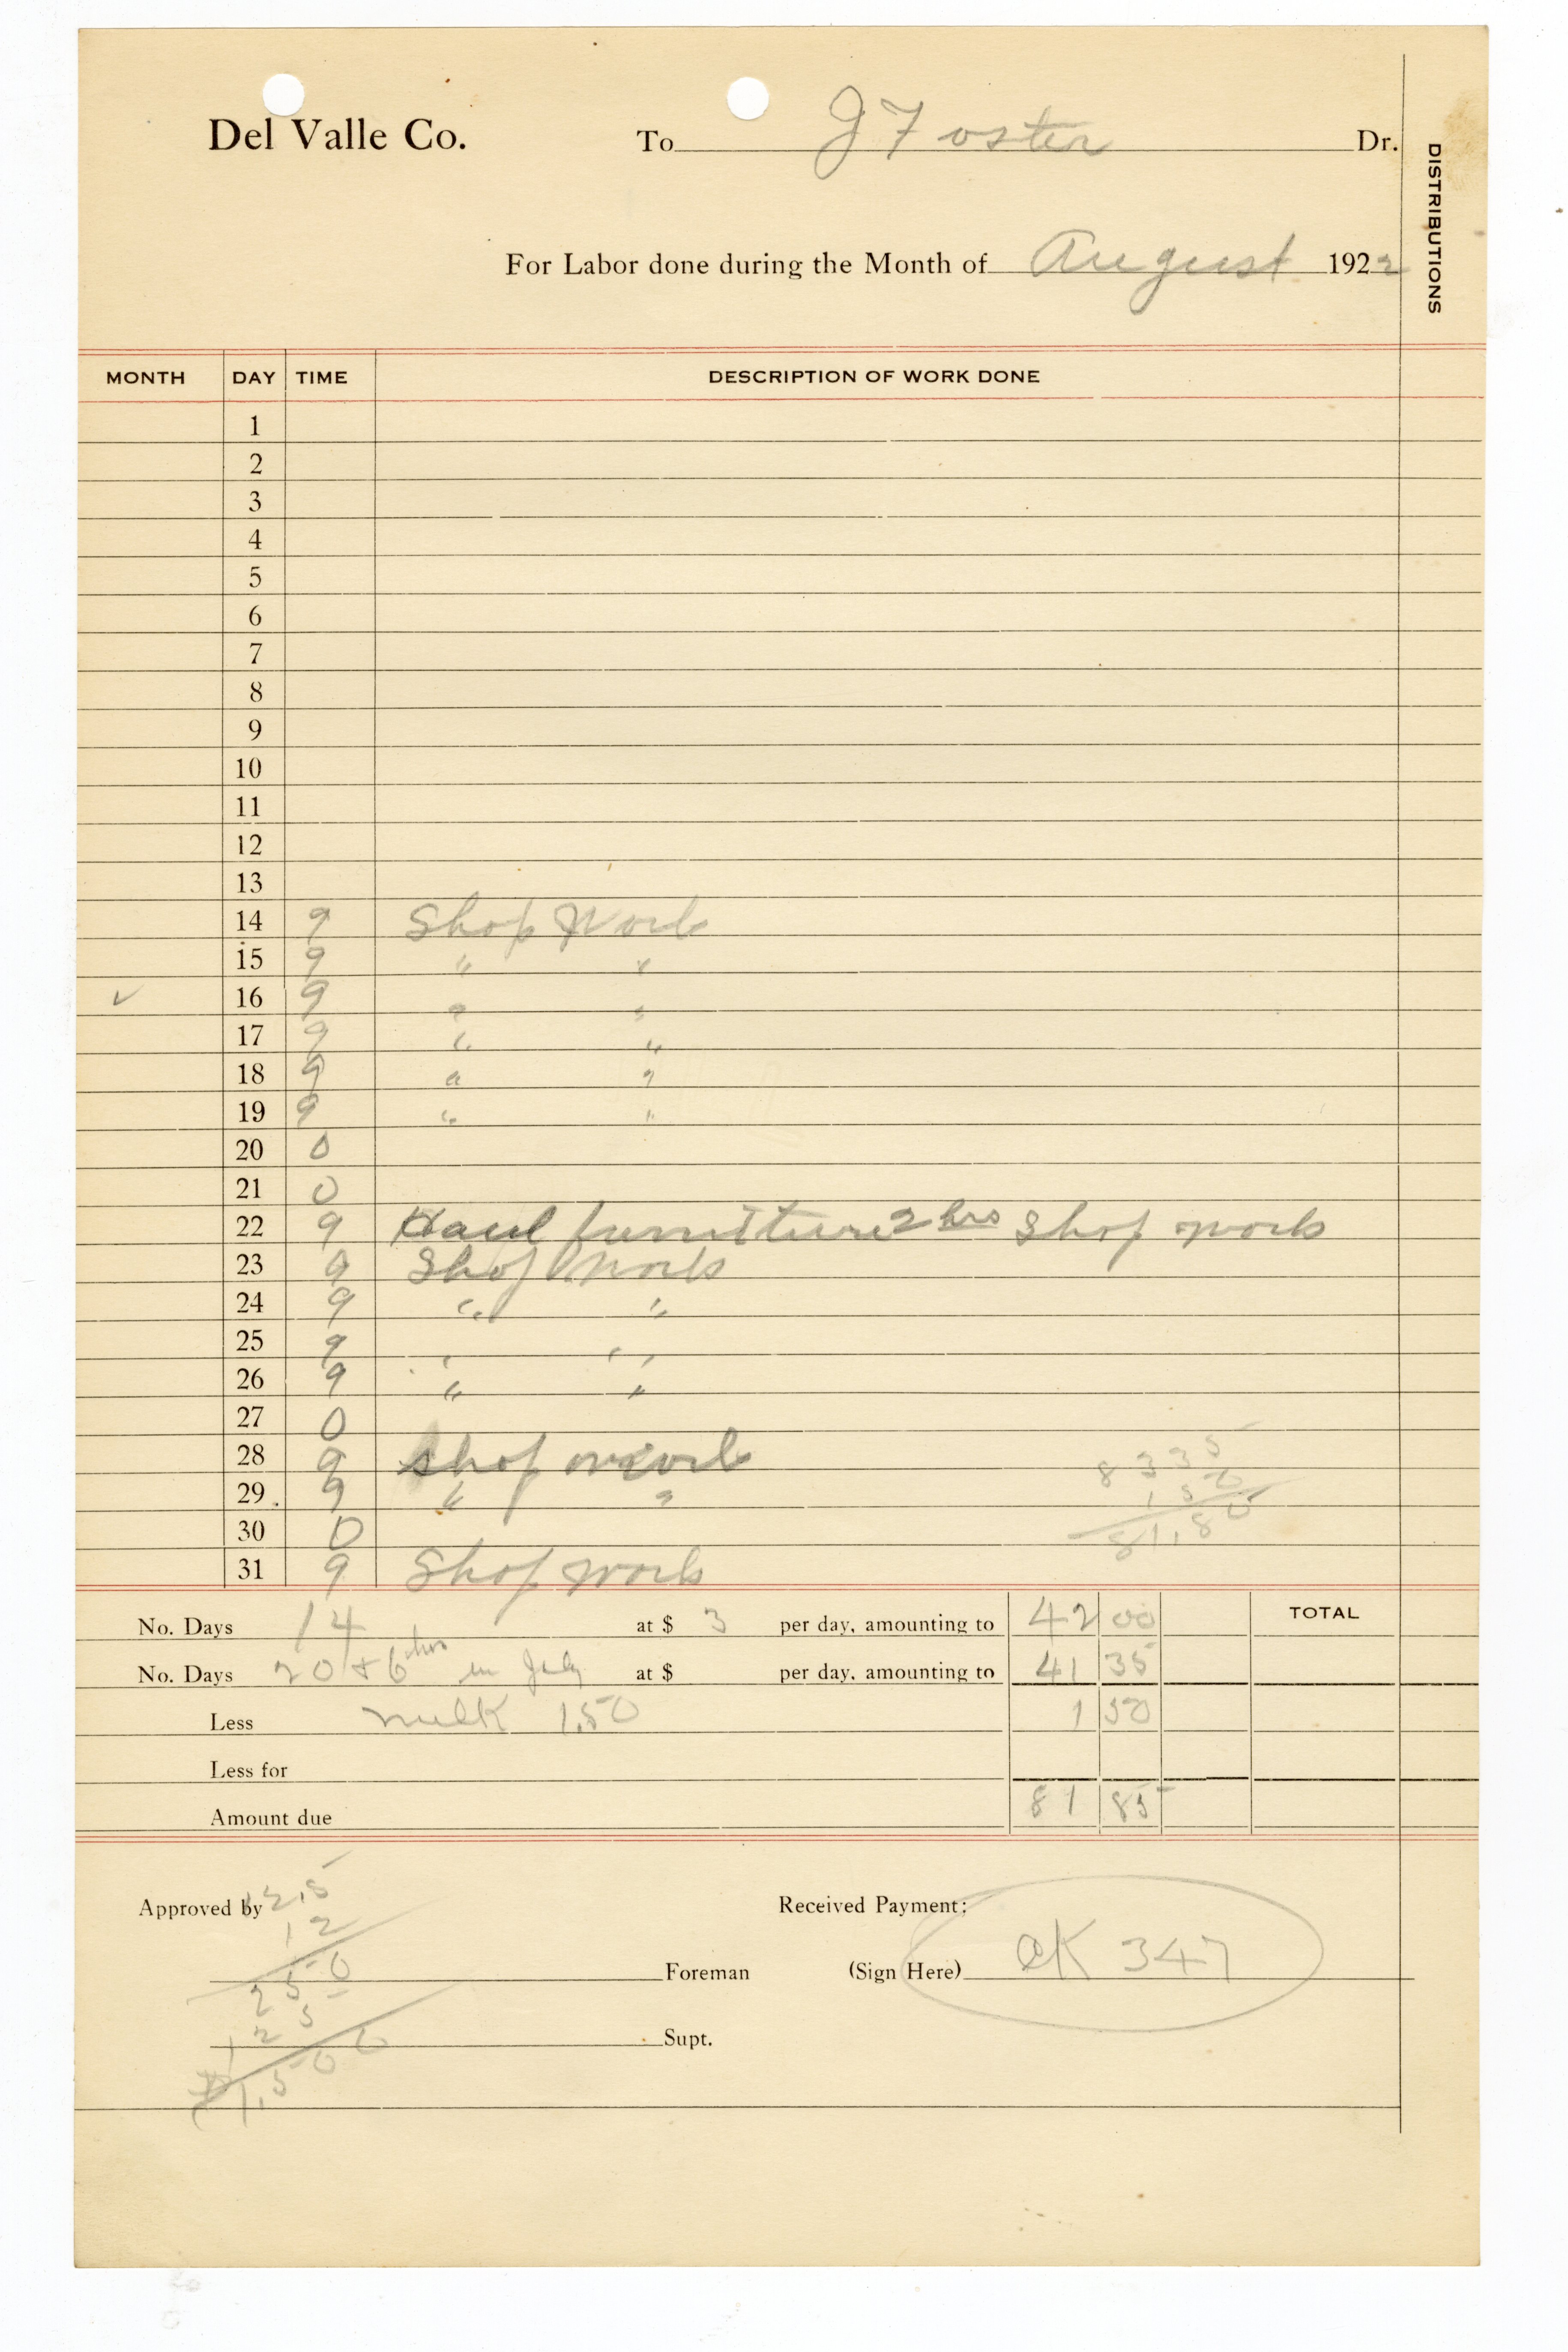 Del Valle Co. To J Foster Dr.
DISTRIBUTIONS
For Labor done during the Month of August 1922
MONTH DAY TIME DESCRIPTION OF WORK DONE
1
2
3
4
5
6
7
8
9
10
11
12
13
14 9 Shop Work
15 9 " "
✓ 16 9 " "
17 9 " "
18 9 " "
19 9 " "
20 0
21 0
22 9 Haul furniture 2 hrs Shop work
23 9 Shop Work
24 9 " "
25 9 " "
26 9 " "
27 0
28 9 Shop work
29 9 " "
30 0
31 9 Shop work
8335
150
81.85
No. Days 14 at $ 3 per day, amounting to 42 00 TOTAL
No. Days 20 + 6 hrs in July at $ per day, amounting to 41 35
Less milk 1.50 1 50
Less for
Amount due 81 85
Approved by Received Payment:
12.5
12
250
125
1.500
Foreman (Sign Here) CK 347
Supt.